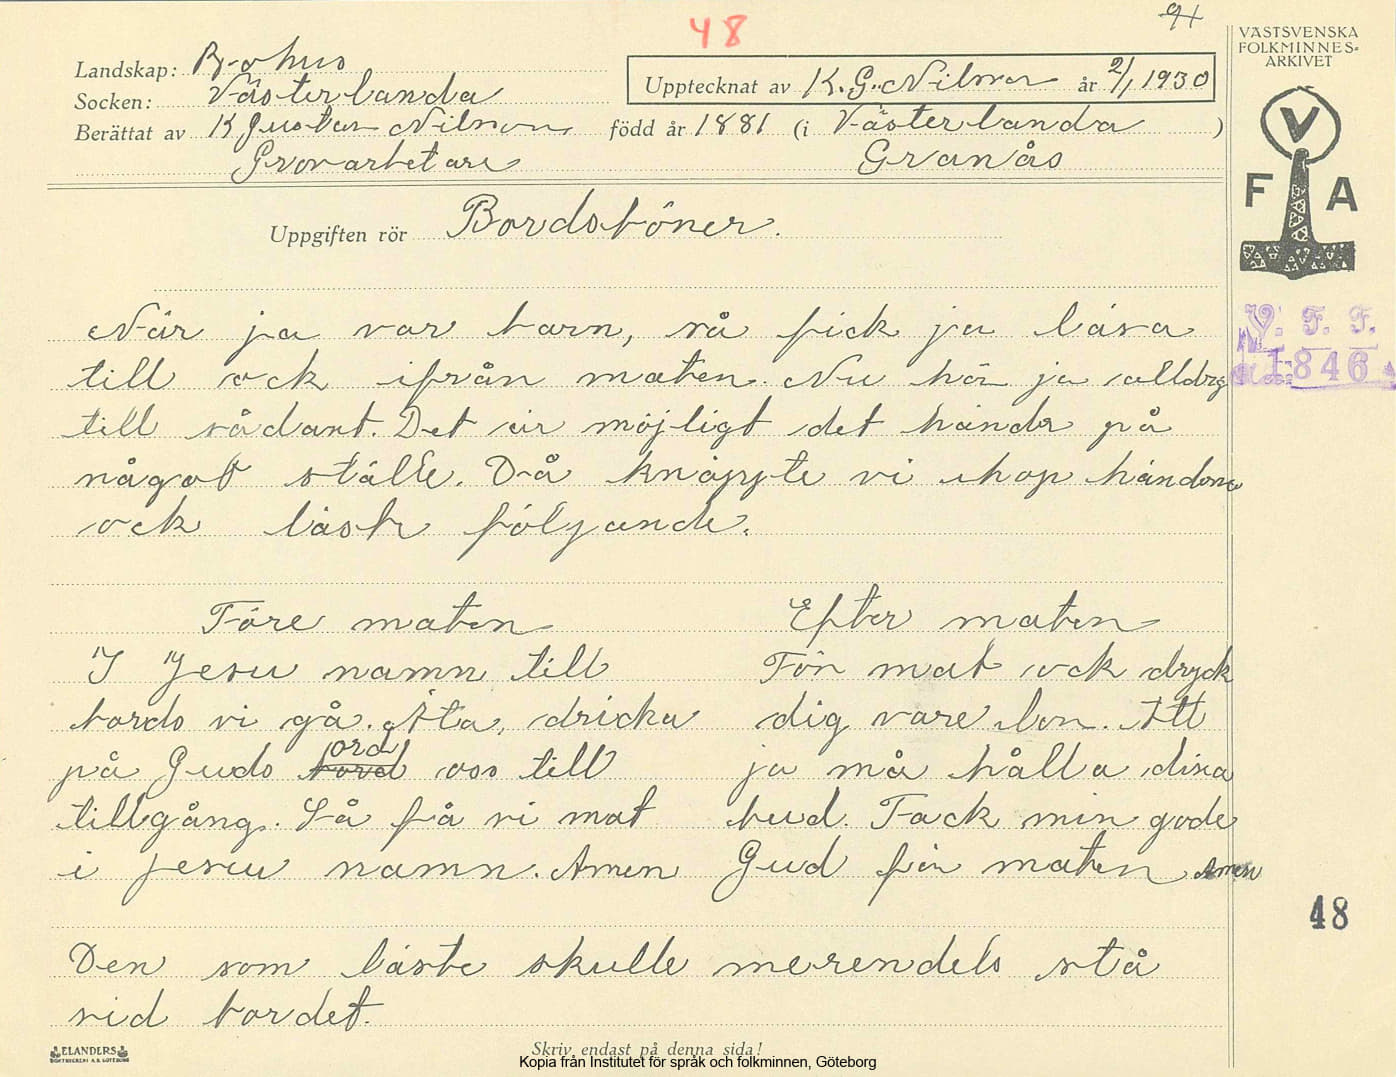 48
91
VÄSTSVENSKA
FOLKMINNES-
ARKIVET
Landskap: Bohus
Upptecknat av K. G. Nilson år 2/1 1930
Socken: Västerlanda
Berättat av K Gustav Nilson född år 1881 (i Västerlanda )
Grovarbetare Granås
V
F A
Uppgiften rör Bordsböner.
V. F. F.
1846
När ja var barn, så fick ja läsa
till ock ifrån maten. Nu hör ja alldrg
till sådant. Det är möjligt det händr på
något ställe. Då knäppte vi ihop händona
ock läste följande.
Före maten
I Jesu namn till
bords vi gå. Äta, dricka
på Guds bord ord oss till
tillgång. Så få vi mat
i jesu namn. Amen
Efter maten
För mat ock dryck
dig vare lov. Att
ja må hålla dina
bud. Tack min gode
Gud för maten Amen
48
Den som läste skulle merendels stå
vid bordet.
ELANDERS
BOKTRYCKERI A.B. GÖTEBORG
Skriv endast på denna sida!
Kopia från Institutet för språk och folkminnen, Göteborg